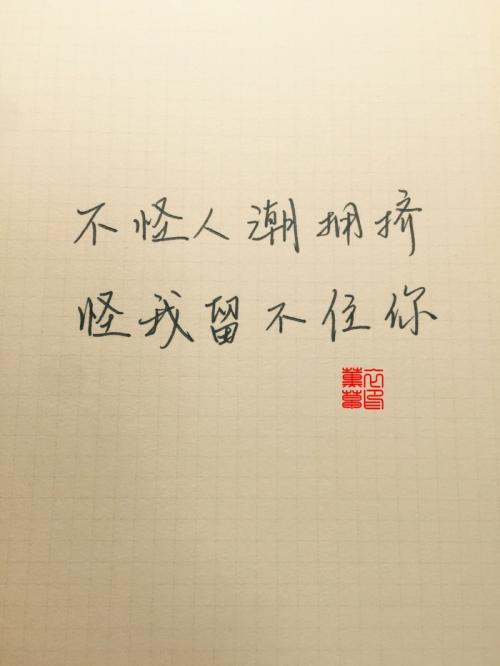 不怪人潮拥挤
怪我留不住你